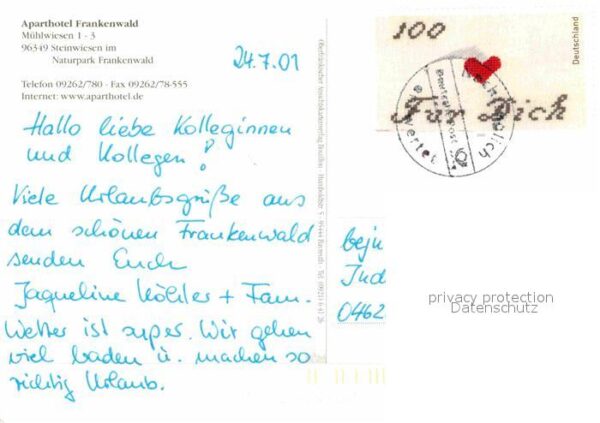 Aparthotel Frankenwald
Mühlwiesen 1 - 3
96349 Steinwiesen im
Naturpark Frankenwald
Telefon 09262/780 - Fax 09262/78-555
Internet: www.aparthotel.de
24.7.01
Hallo liebe Kolleginnen
und Kollegen!
Viele Urlaubsgrüße aus
dem schönen Frankenwald
senden Euch
Jaqueline Köhler + Fam.
Wetter ist super. Wir gehen
viel baden u. machen so
richtig Urlaub.
100
Deutschland
Für Dich
Nachträglich
entwertet
Deutsche Post
Jud
0462
privacy protection
Datenschutz